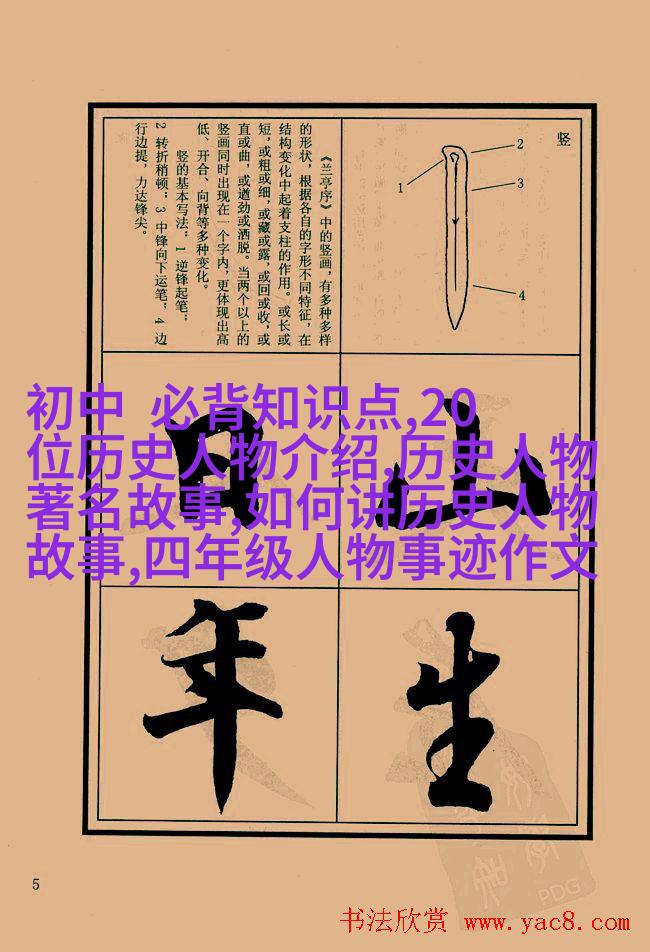 竖
1
2
3
4
《兰亭序》中的竖画，有多种多样
的形状，根据各自的字形不同特征，在
结构变化中起着支柱的作用。或长或
短，或粗或细，或藏或露，或回或收，或
直或曲，或遒劲或洒脱。当两个以上的
竖画同时出现在一个字内，更体现出高
低、开合、向背等多种变化。
竖的基本写法：1 逆锋起笔；
2 转折稍顿；3 中锋向下运笔；4 边
行边提，力达锋尖。
初中 必背知识点,20
位历史人物介绍,历史人物
著名故事,如何讲历史人物
故事,四年级人物事迹作文
山
日
生
年
5
PDG
书法欣赏 www.yac8.com